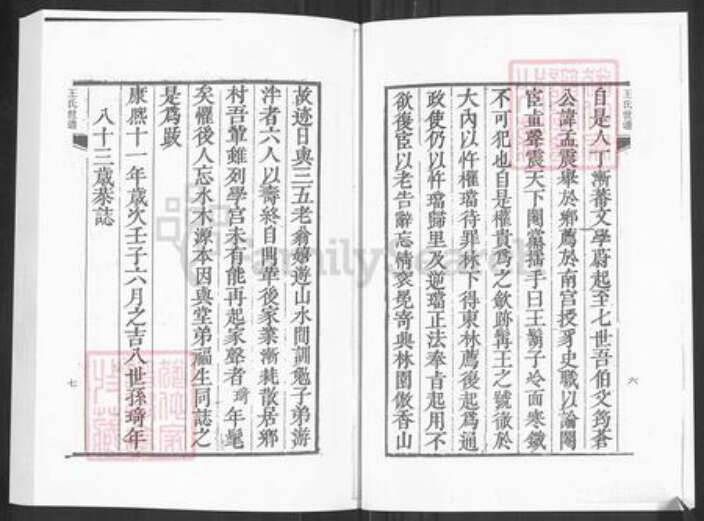 王氏世譜
自是人丁漸蕃文學蔚起至七世吾伯父筠蒼
公諱孟震舉於鄉薦於南宮授豸史職以論閹
宦直聲震天下閹黨搖手曰王鬍子冷面寒鐵
不可犯也自是權貴爲之歛跡髯王之號徹於
大內以忤權璫待罪林下得東林薦後起爲通
政使仍以忤璫歸里及逆璫正法奉旨起用不
欲復宦以老告辭忘情袞冕寄興林園傲香山
六
故迹日與三五老翁嬉遊山水間訓勉子弟游
泮者六人以壽終自鼎革後家業漸耗散居鄉
村吾輩雖列學宮未有能再起家聲者琦年髦
矣懼後人忘水木源本因與堂弟福生同誌之
是爲跋
康熙十一年歲次壬子六月之吉八世孫琦年
八十三歲恭誌
王氏世譜
七
FamilySearch